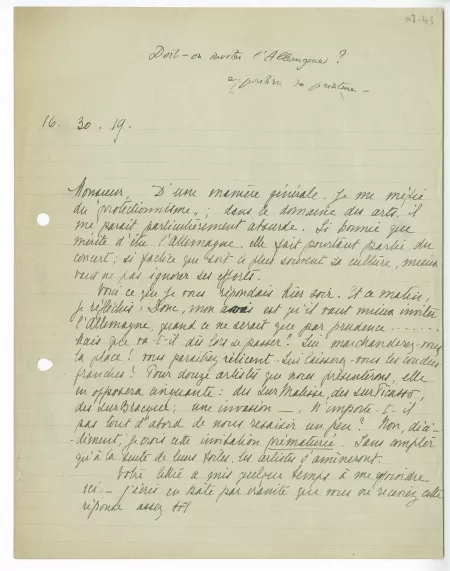 03-43
Doit-on inviter l'Allemagne ?
exposition de peinture —
16. 30. 19.
Monsieur, D'une manière générale je me méfie
du "protectionnisme" ; dans le domaine des arts il
me paraît particulièrement absurde. Si honnie que
mérite d'être l'Allemagne, elle fait pourtant partie du
concert ; si factice que soit le plus souvent sa culture, mieux
vaut ne pas ignorer ses efforts.
Voici ce que je vous répondais hier soir. Et ce matin,
je réfléchis : Donc, mon avis est qu'il vaut mieux inviter
l'Allemagne, quand ce ne serait que par prudence .......
Mais que va-t-il dès lors se passer ? Lui marchanderez-vous
la place ? vous paraîtrez réticent. Lui laisserez-vous les coudées
franches ? Pour douze artistes que nous présenterons, elle
en opposera cinquante : des Sur Matisse, des sur Picasso,
des Sur Braque ; une invasion —. N'importe-t-il
pas tout d'abord de nous ressaisir un peu ? Non, déci-
dément, je crois cette invitation prématurée. Sans compter
qu'à la suite de leurs toiles, les artistes s'amèneront.
Votre lettre a mis quelque temps à me rejoindre
ici — j'écris en hâte par crainte que vous ne receviez cette
réponse assez tôt